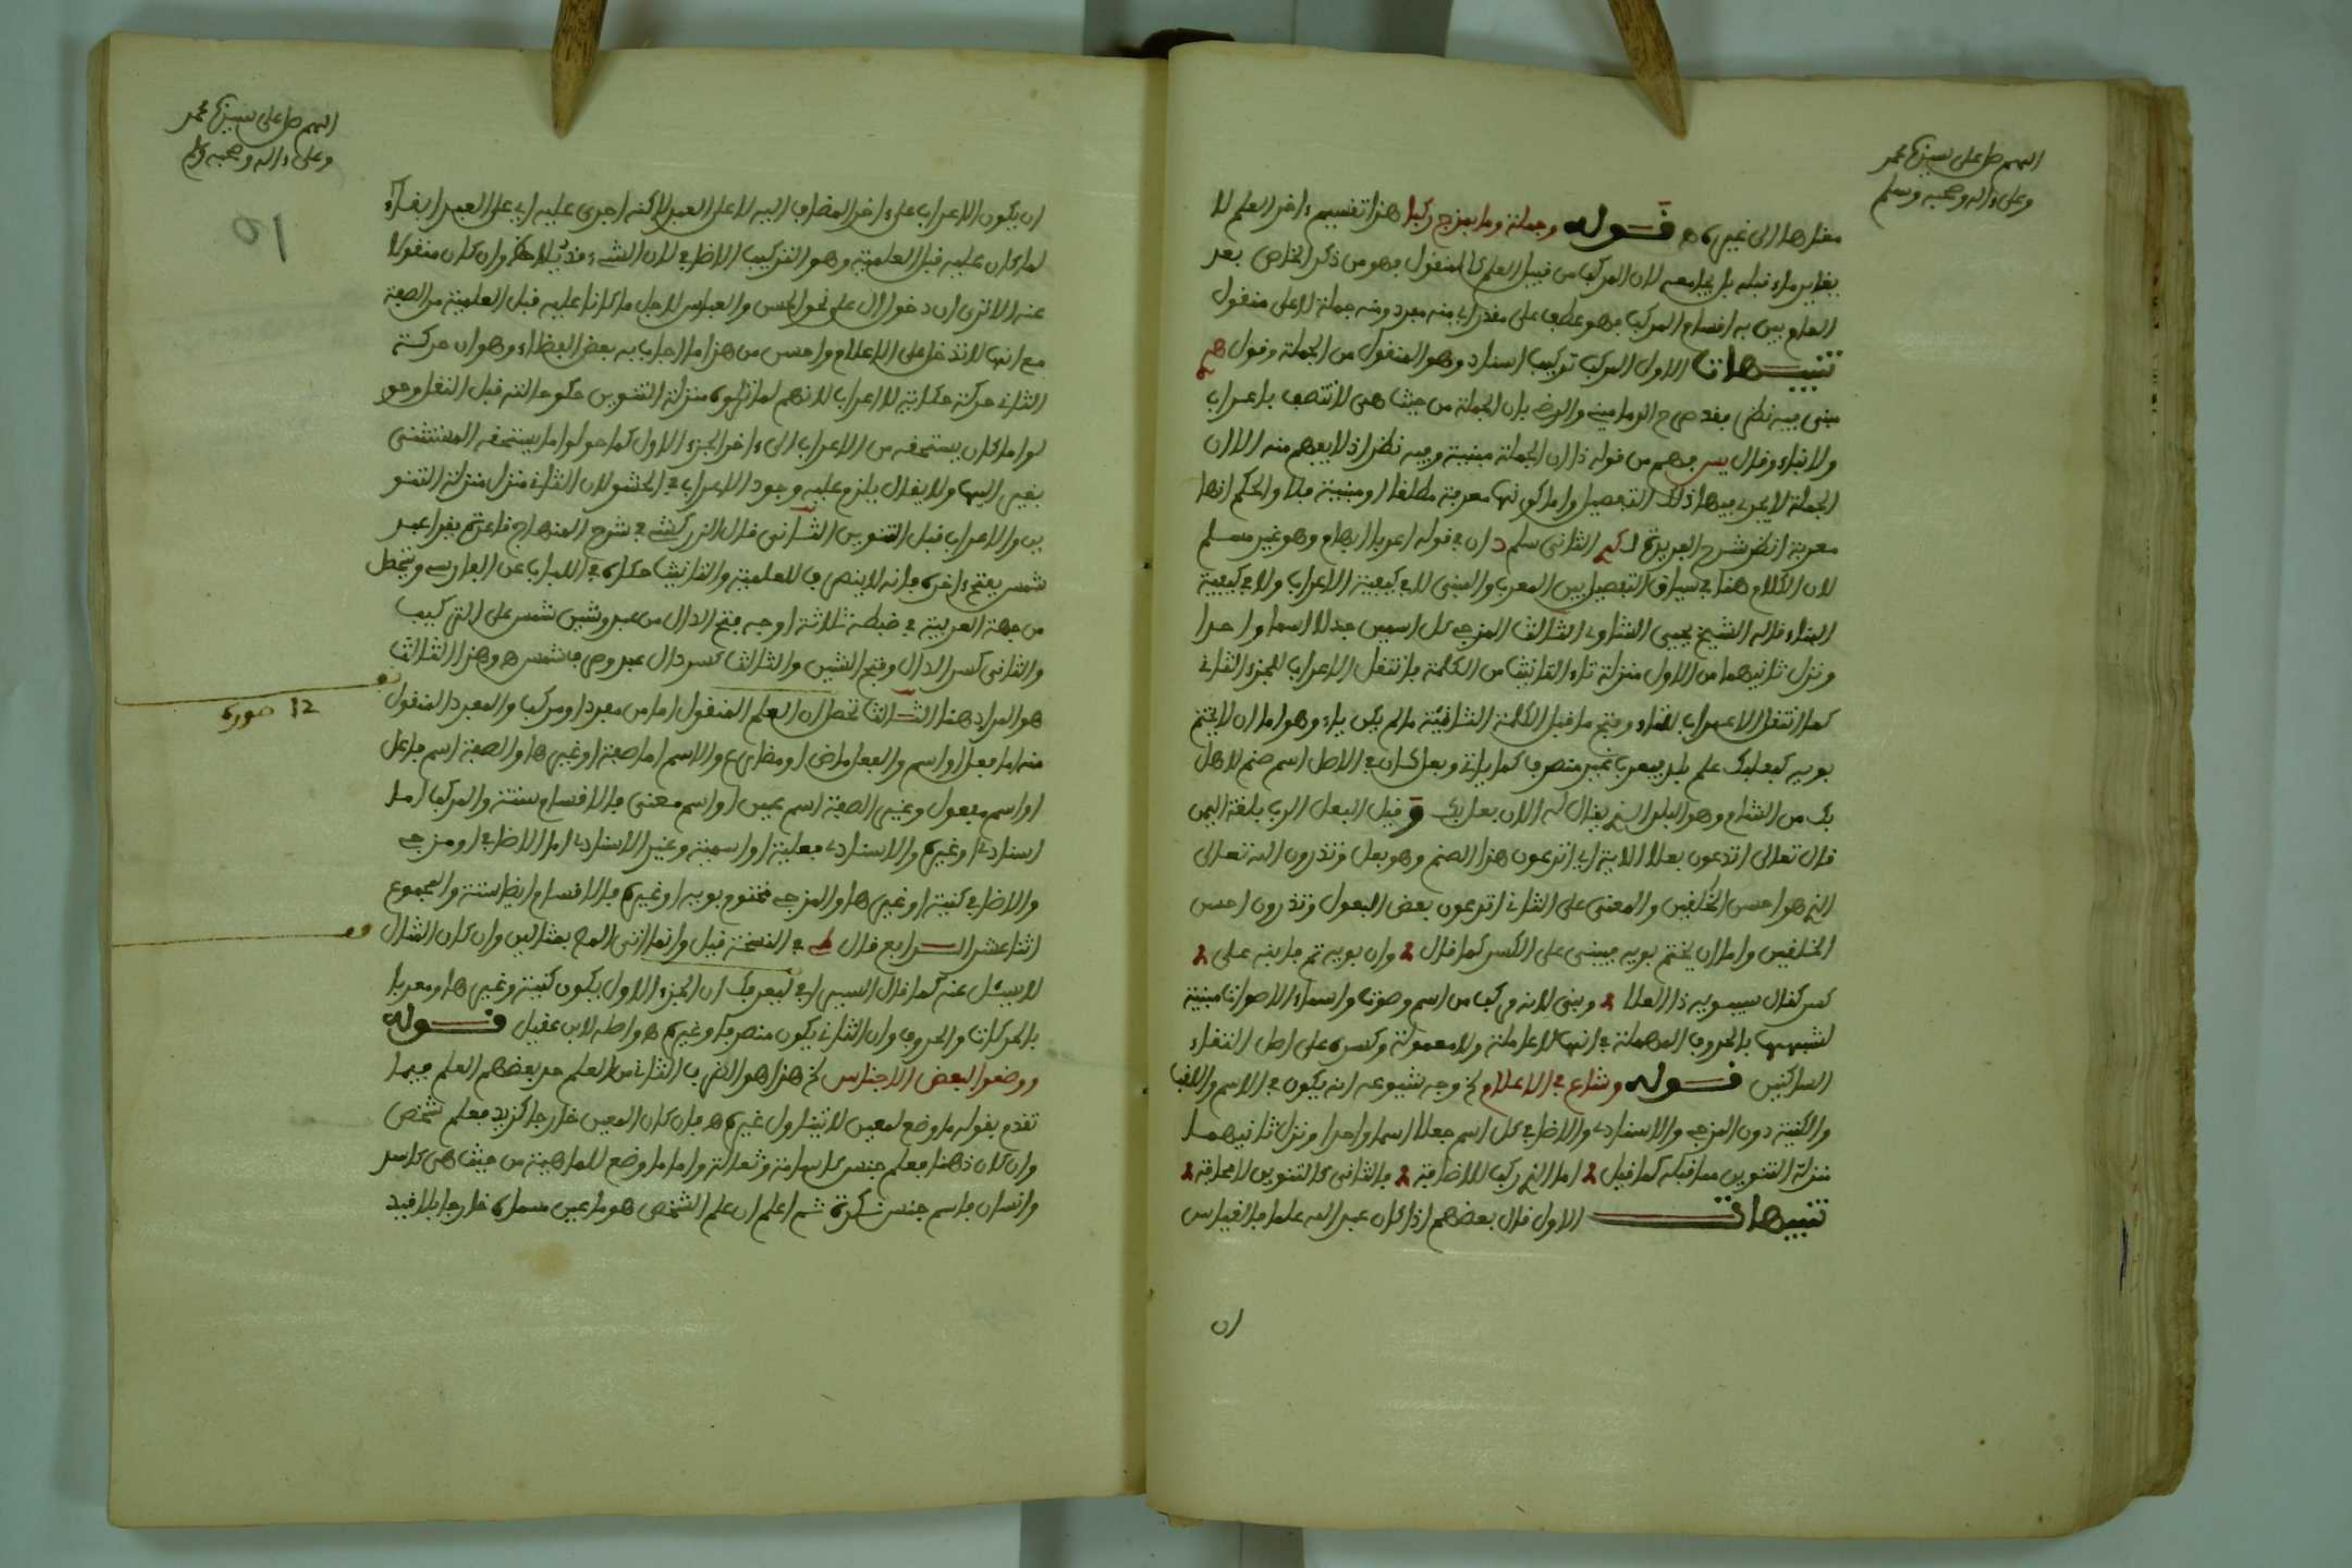 اللهم صل على سيدنا محمد
وعلى ءاله وصحبه وسلم
معناها الى غيره اه قوله وجملة وما بمزج ركبا هذا تقسيم ءاخر للعلم لا
يغاير ما قبله بل يجامعه لان المركب من قبيل العلم المنقول فهو من ذكر الخاص بعد
العام وبين به اقسام المركب فهو عطف على مقدر اي منه مفرد ومنه جملة لا على منقول
تنبيهات الاول المركب تركيب اسناد وهو المنقول من الجملة وقول
مبنى فيه نظر فقد صرح الدمامينى والرضي بان الجملة من حيث هى لا تتصف باعراب
ولا بناء وقال يس فهم من قوله ذا ان الجملة مبنية وفيه نظر اذ لا يفهم منه الا ان
الجملة لا يجرى فيها ذلك التفصيل واما كونها معربة مطلقا او مبنية فلا والحكم انها
معربة انظر شرح الفريدة الثانى سلم ان في قوله اعربا ابهام وهو غير مسلم
لان الكلام هنا في سياق التفصيل بين المعرب والمبنى لا في كيفية الاعراب ولا في كيفية
البناء قاله الشيخ يحيى الشاوى الثالث المزجى كل اسمين جعلا اسما واحدا
ونزل ثانيهما من الاول منزلة تاء التانيث من الكلمة فانتقل الاعراب للجزء الثانى
كما انتقل الاعراب للتاء وفتح ما قبل الكلمة الثانية ما لم يكن ياء وهو اما ان لا يختم
بويه كبعلبك علم بلد فيعرب غير منصرف كما ياتى وبعل كان في الاصل اسم صنم لاهل
بك من الشام وهو البلد الذي يقال له الان بعلبك وقيل البعل الرب بلغة اليمن
قال تعالى اتدعون بعلا الاية اي اتدعون هذا الصنم وهو بعل وتذرون الله تعالى
الذي هو احسن الخالقين والمعنى على الثانى اتدعون بعض البعول وتذرون احسن
الخالقين واما ان يختم بويه فيبنى على الكسر كما قال وان بويه تم فابنه على
كسر كقال سيبويه ذا العلا وبنى لانه مركب من اسم وصوت واسماء الاصوات مبنية
لشبهها بالحروف المهملة في انها لا عاملة ولا معمولة وكسره على اصل التقاء
الساكنين قوله وشاع في الاعلام وجه شيوعه انه يكون في الاسم واللقب
والكنية دون المزجى والاسنادى والاضافي كل اسم جعلا اسما واحدا ونزل ثانيهما
منزلة التنوين مما قبله كما قيل اما الذي ركب للاضافة فالثانى كالتنوين لا محافة
تنبيهات الاول قال بعضهم اذا كان عبد الله علما فالقياس
ان
اللهم صل على سيدنا محمد
وعلى ءاله وصحبه وسلم
10
ان يكون الاعراب على ءاخر المضاف اليه لا على العبد لاكنه اجرى عليه اي على العبد ابقاء
لما كان عليه قبل العلمية وهو التركيب الاضافي لان الشيء قد يلاحظ وان كان منقولا
عنه الا ترى ان دخول ال على نحو الحسن والعباس لاجل ما كانا عليه قبل العلمية من الصفة
مع انها لا تدخل على الاعلام واحسن من هذا ما اجاب به بعض الفضلاء وهو ان حركة
الثانى حركة حكاية لا اعراب لانهم لما نزلوه منزلة التنوين حكوا حالته قبل النقل وحو
لوا ما كان يستحقه من الاعراب الى ءاخر الجزء الاول كما حولوا ما يستحقه المستثنى
بغير اليها ولا يقال يلزم عليه وجود الاعراب في الحشو لان الثانى منزل منزلة التنو
ين والاعراب قبل التنوين الثانى قال الزركشى في شرح المنهاج قاعدة يقرا عبد
شمس بفتح ءاخره فانه لا ينصرف للعلمية والتانيث حكاه في اللباب عن الفارسى وتحصل
من جهة العربية في ضبطه ثلاثة اوجه فتح الدال من عبد وشين شمس على التركيب
والثانى كسر الدال وفتح الشين والثالث كسر دال عبد وصرف شمس اه وهذا الثالث
هو المراد هنا الثالث تحصل ان العلم المنقول اما من مفرد او مركب والمفرد المنقول
12 صورة
منه اما فعل او اسم والفعل ماض او مضارع والاسم اما صفة او غيرها والصفة اسم فاعل
او اسم مفعول وغير الصفة اسم عين او اسم معنى فالاقسام ستة والمركب اما
اسنادى او غيره والاسنادى فعلية او اسمية وغير الاسنادى اما الاضافي او مزجى
والاضافي كنية او غيرها والمزجى مختوم بويه او غيره فالاقسام ايضا ستة والمجموع
اثنا عشر الرابع قال في النسخة قيل وانما اتى المص بمثالين وان كان المثال
لا يسئل عنه كما قال السبى اي ليعرفك ان الجزء الاول يكون كنية وغيرها ومعربا
بالحركات والحروف وان الثانى يكون منصرفا وغيره اه واصله لابن عقيل قوله
ووضعوا لبعض الاجناس هذا هو الضرب الثانى من العلم حد بعضهم العلم فيما
تقدم بقوله ما وضع لمعين لا يتناول غيره اه فان كان المعين خارجا كزيد فعلم شخص
وان كان ذهنا فعلم جنس كاسامة وثعالة واما ما وضع للماهية من حيث هى كاسد
وانسان فاسم جنس نكرة ثم اعلم ان علم الشخص هو ما عين مسماه خارجا بلا قيد